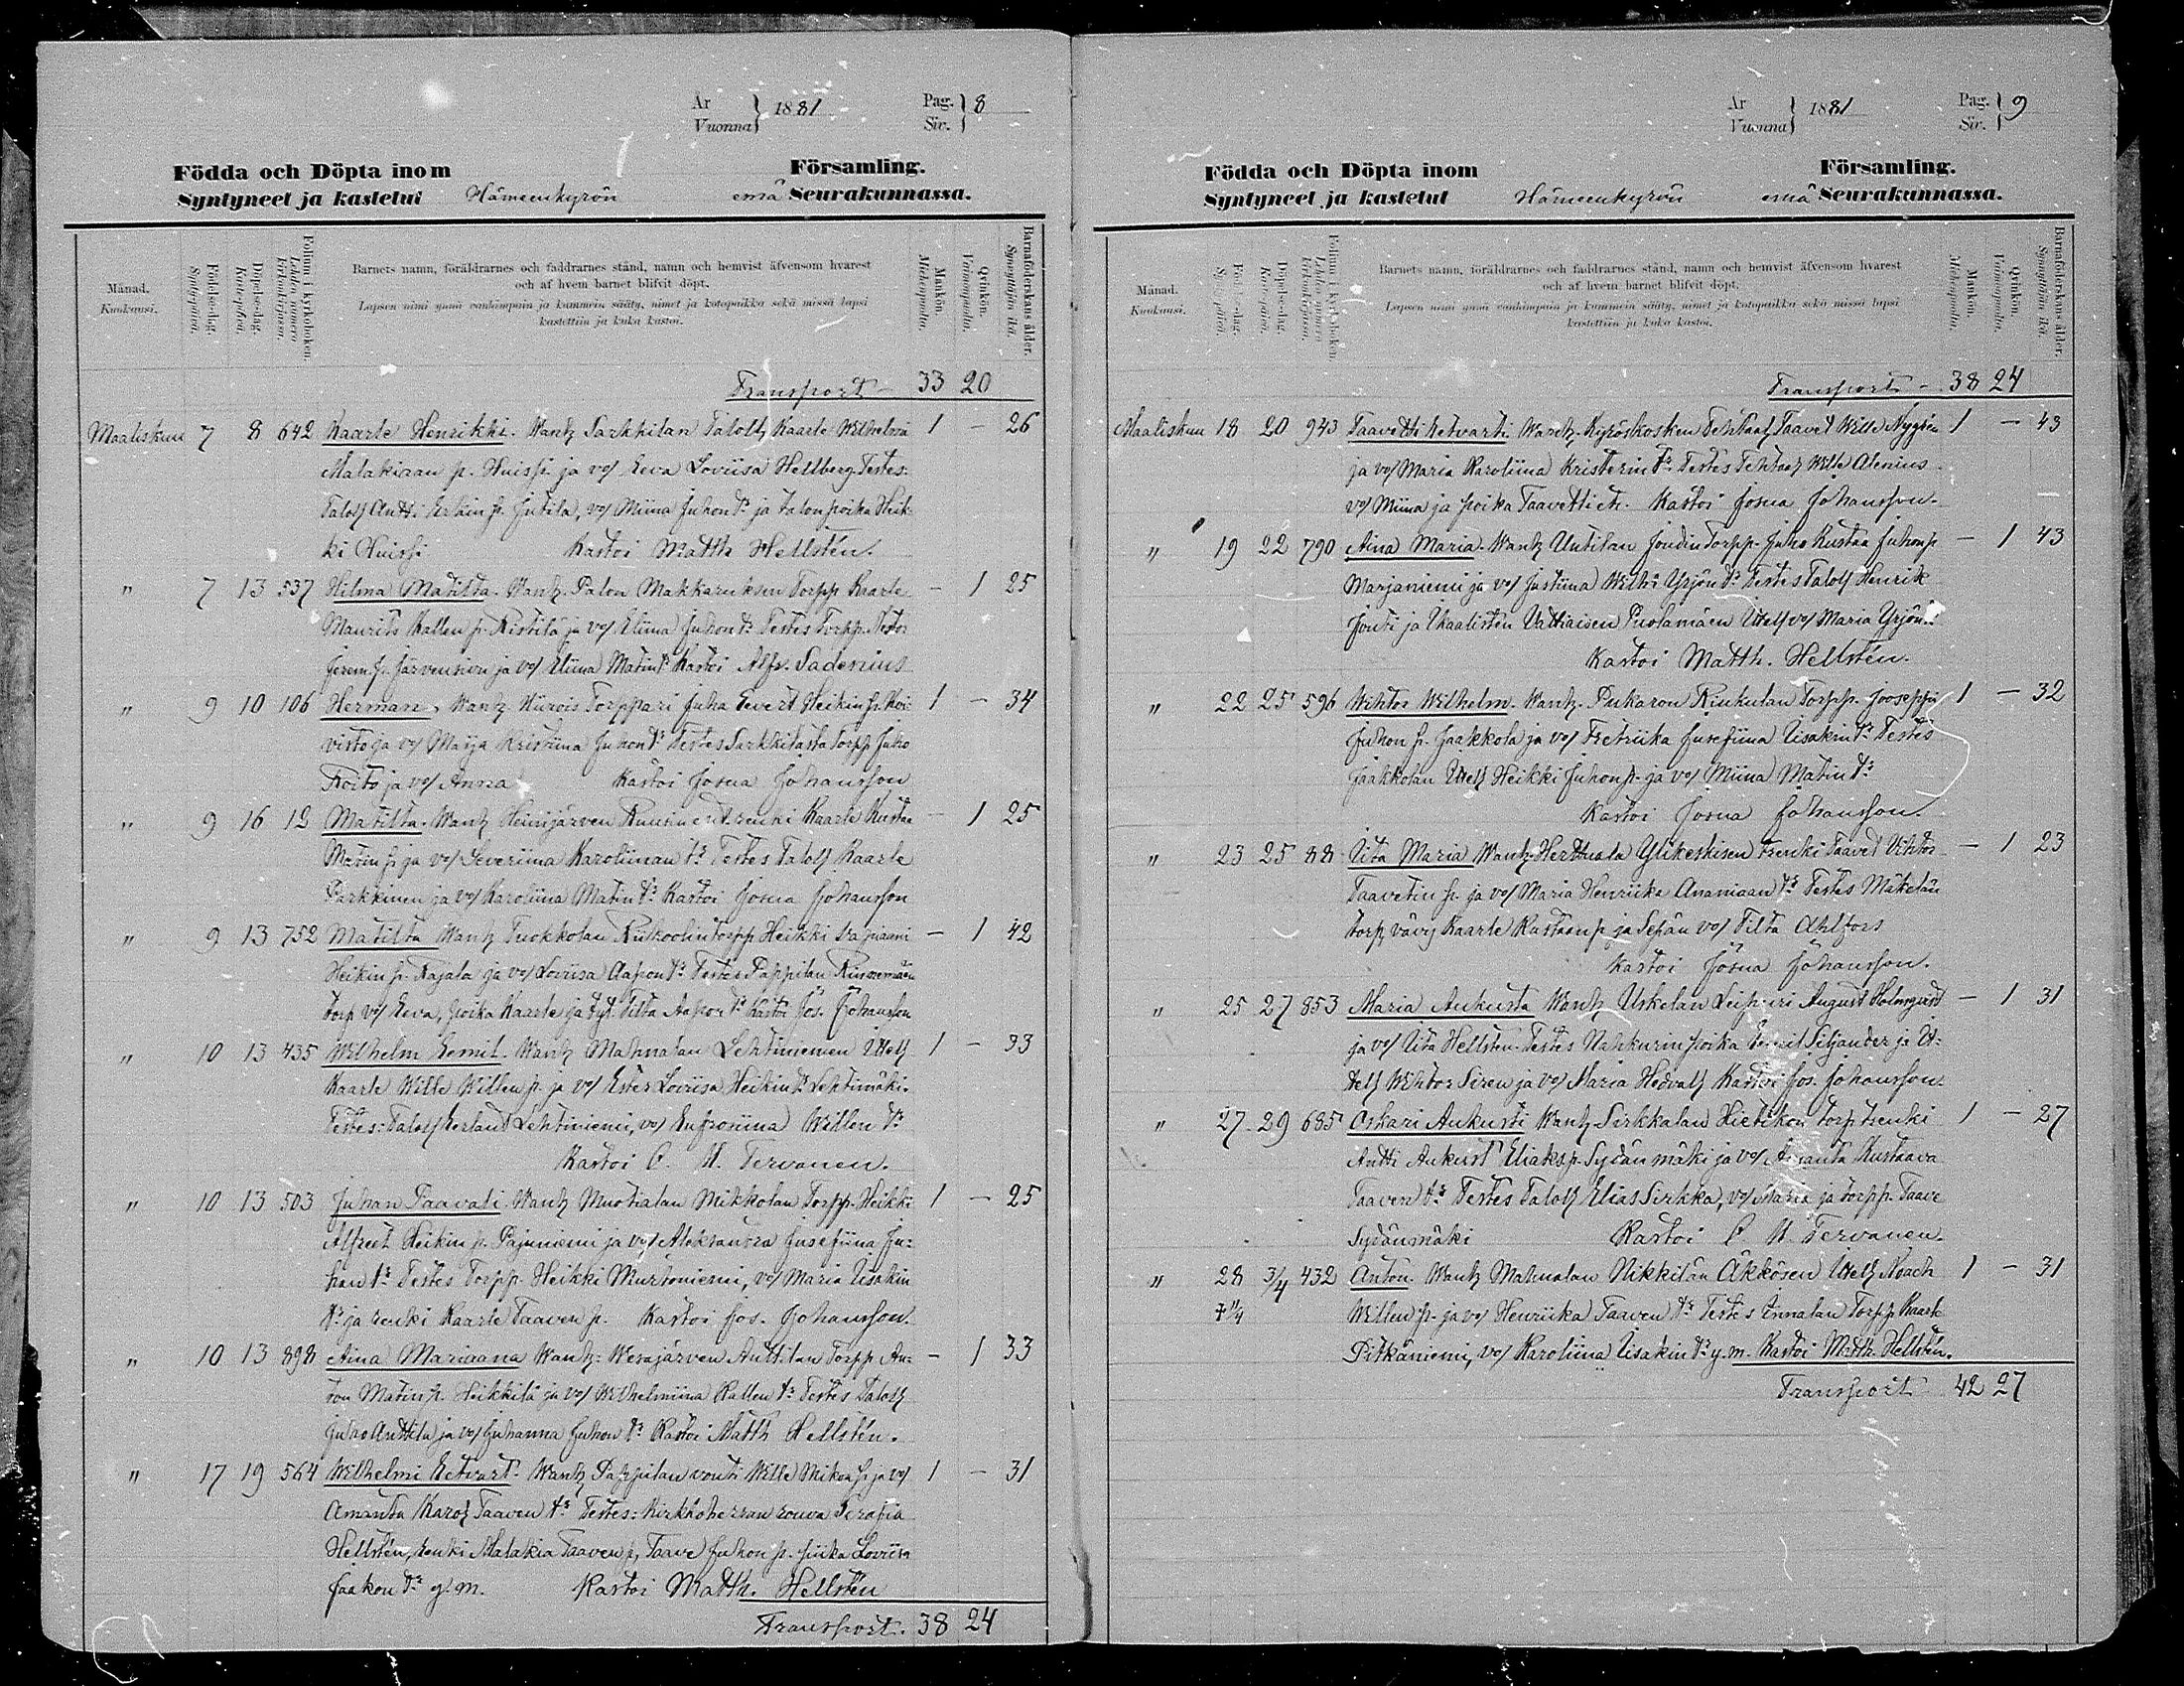 År
Vuonna } 1881
Pag.
Siv. } 8
Födda och Döpta inom Församling.
Syntyneet ja kastetut Hämeenkyrön emä Seurakunnassa.
Månad.
Kuukausi.
Födelsedag.
Syntypäivä.
Döpelsedag.
Kastepäivä.
Folium i kyrkoboken.
Lehden numero kirkonkirjassa.
Barnets namn, föräldrarnes och faddrarnes stånd, namn och hemvist äfvensom hvarest
och af hvem barnet blifvit döpt.
Lapsen nimi ynnä vanhempain ja kummein sääty, nimet ja kotopaikka sekä missä lapsi
kastettiin ja kuka kastoi.
Mankön.
Miehenpuolia.
Qvinkön.
Vaimonpuolia.
Barnaföderskans ålder.
Synnyttäjän ikä.
Transport 33 20
Maaliskuu 7 8 642 Kaarle Henrikki. Wanh. Sarkkilan Taloll. Kaarle Wilhelmi 1 – 26
Malakiaan p. Huissi ja vo/ Eeva Loviisa Hellberg. Testes:
Taloll. Antti Erkin p. Jutila, vo/ Miina Juhon tr ja talon poika Heik-
ki Huissi Kastoi Matth Hellstén.
" 7 13 537 Hilma Matilta. Wanh. Palon Makkaruksen Torpp Kaarle – 1 25
Maurits Kallen p. Ristilä ja vo/ Eliina Juhon tr Testes Torpp. Nestor
Jerem. p. Järvensivu ja vo/ Eliina Matin tr Kastoi Alfr. Sadenius
" 9 10 106 Herman. Wanh. Torppari Juha Eevert Heikin p. Koi- 1 – 34
visto ja vo/ Maija Kristiina Juhon tr Testes Sarkkilasta Torpp Juho
Koito ja vo/ Anna Kastoi Josua Johansson
" 9 16 12 Matilta. Wanh. Heinijärven renki Kaarle Kustaa – 1 25
Matin p. ja vo/ Severiina Karoliinan tr Testes Taloll Kaarle
Parkkinen ja vo/ Karoliina Matin tr Kastoi Josua Johansson
" 9 13 752 Matilta Wanh. Tuokkolan torpp Heikki – 1 42
Heikin p. Rajala ja vo/ Loviisa Aapon tr Testes Pappilan
torp vo/ Eeva, poika Kaarle ja tyt. Tilta Aapon tr Kastoi Jos. Johansson
" 10 13 435 Wilhelm Eemil. Wanh. Mahnalan Lehtiniemen Itell. 1 – 33
Kaarle Wille Willen p. ja vo/ Ester Loviisa Heikin tr Lehtimäki.
Testes: Taloll. Eerland Lehtiniemi, vo/ Eufrosiina Willen tr
Kastoi C. U. Tervanen.
" 10 13 503 Juhan Taavali. Wanh. Muotialan Mikkolan Torpp. Heikki 1 – 25
Alfreet Heikin p. Pajuniemi ja vo/ Aleksantra Jusefiina Ju-
han tr Testes Torpp. Heikki Murtoniemi, vo/ Maria Iisakin
tr ja renki Kaarle Taaven p. Kastoi Jos. Johansson.
" 10 13 898 Aina Mariaana Wanh: Wesajärven Anttilan Torpp An- – 1 33
ton Matin p. Heikkilä ja vo/ Wilhelmiina Kallen tr Testes Taloll
Juho Anttila ja vo/ Juhanna Juhon tr Kastoi Matth Hellstén.
" 17 19 564 Wilhelmi Eetvart. Wanh. Pappilan vouti Wille Mikon p. ja vo/ 1 – 31
Amanta Karol. Taaven tr Testes: Kirkkoherran rouva Serafia
Hellstén, renki Malakia Taaven p, Taave Juhon p. piika Loviisa
Jaakon tr y.m. Kastoi Matth. Hellstén
Transport. 38 24
År
Vuonna } 1881
Pag.
Siv. } 9
Födda och Döpta inom Församling.
Syntyneet ja kastetut Hämeenkyrön emä Seurakunnassa.
Månad.
Kuukausi.
Födelsedag.
Syntypäivä.
Döpelsedag.
Kastepäivä.
Folium i kyrkoboken.
Lehden numero kirkonkirjassa.
Barnets namn, föräldrarnes och faddrarnes stånd, namn och hemvist äfvensom hvarest
och af hvem barnet blifvit döpt.
Lapsen nimi ynnä vanhempain ja kummein sääty, nimet ja kotopaikka sekä missä lapsi
kastettiin ja kuka kastoi.
Mankön.
Miehenpuolia.
Qvinkön.
Vaimonpuolia.
Barnaföderskans ålder.
Synnyttäjän ikä.
Transport - 38 24
Maaliskuu 18 20 943 Taavetti Eetvarti. Wanh. Kyröskosken Tehtaal. Taavet Wille Nygrén 1 – 43
ja vo/ Maria Karoliina Kristerin tr Testes Tehtaal. Wille Alenius
vo/ Miina ja poika Taavetti etc. Kastoi Josua Johansson.
" 19 22 790 Aina Maria. Wanh. Untilan Joudin Torpp. Juho Kustaa Juhon p – 1 43
Marjaniemi ja vo/ Justiina Wilh. Yrjön tr Testes Taloll Henrik
Jouti ja Ikaalisten Vattiaisen Puolamäen Itell vo/ Maria Yrjön tr
Kastoi Matth. Hellstén.
" 22 25 596 Wihtor Wilhelm. Wanh. Pukaron Rinkulan Torpp. Jooseppi 1 – 32
Juhon p. Jaakkola ja vo/ Fretriika Jusefiina Iisakin tr Testes
Jaakkolan Itell Heikki Juhon p. ja vo/ Miina Matin tr
Kastoi Josua Johansson.
" 23 25 88 Iita Maria Wanh. Herttuala Ylikeskisen renki Taavet Vihtor – 1 23
Taavetin p. ja vo/ Maria Henriika Ananiaan tr Testes Mäkelän
torp. vävy Kaarle Kustaan p ja Sepän vo/ Tilta Ahlfors
Kastoi Josua Johansson.
" 25 27 853 Maria Aukusta Wanh. Uskelan Leipuri August Holmqvist – 1 31
ja vo/ Iita Hellsten. Testes Nahkurin poika Eemil Siljander ja It-
tell. Wihtor Siren ja vo/ Maria Hedvall Kastoi Jos. Johansson.
" 27 29 685 Oskari Aukusti Wanh. Sirkkalan Hietikon torp. renki 1 – 27
Antti Aukust Eliaksp. Sydänmäki ja vo/ Amanta Kustaava
Taaven tr Testes Taloll. Elias Sirkka, vo/ Maria ja torpp. Taave
Sydänmäki Kastoi C U. Tervanen.
" 28 3/4 432 Anton. Wanh. Mahnalan Nikkilän Äkkösen Itell. Noach 1 – 31
† 11/4 Willen p. ja vo/ Henriika Taaven tr Testes Innalan Torpp Kaarle
Pitkäniemi, vo/ Karoliina Iisakin tr y.m. Kastoi Matth. Hellstén.
Transport 42 27